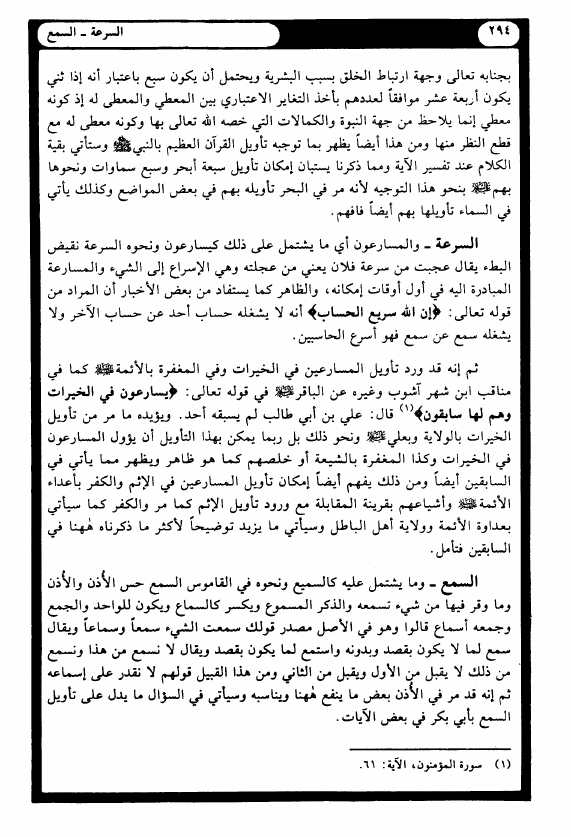 ٢٩٤
السرعة ـ السمع
بجنابه تعالى وجهة ارتباط الخلق بسبب البشرية ويحتمل أن يكون سبع باعتبار أنه إذا ثني
يكون أربعة عشر موافقاً لعددهم بأخذ التغاير الاعتباري بين المعطي والمعطى له إذ كونه
معطي إنما يلاحظ من جهة النبوة والكمالات التي خصه الله تعالى بها وكونه معطى له مع
قطع النظر منها ومن هذا أيضاً يظهر بما توجبه تأويل القرآن العظيم بالنبي ﷺ وستأتي بقية
الكلام عند تفسير الآية ومما ذكرنا يستبان إمكان تأويل سبعة أبحر وسبع سماوات ونحوها
بهم ﷺ بنحو هذا التوجيه لأنه مر في البحر تأويله بهم في بعض المواضع وكذلك يأتي
في السماء تأويلها بهم أيضاً فافهم.
السرعة ـ والمسارعون أي ما يشتمل على ذلك كيسارعون ونحوه السرعة نقيض
البطء يقال عجبت من سرعة فلان يعني من عجلته وهي الإسراع إلى الشيء والمسارعة
المبادرة اليه في أول أوقات إمكانه، والظاهر كما يستفاد من بعض الأخبار أن المراد من
قوله تعالى: ﴿إن الله سريع الحساب﴾ أنه لا يشغله حساب أحد عن حساب الآخر ولا
يشغله سمع عن سمع فهو أسرع الحاسبين.
ثم إنه قد ورد تأويل المسارعين في الخيرات وفي المغفرة بالأئمة ﷺ كما في
مناقب ابن شهر آشوب وغيره عن الباقر ﷺ في قوله تعالى: ﴿يسارعون في الخيرات
وهم لها سابقون﴾(١) قال: علي بن أبي طالب لم يسبقه أحد. ويؤيده ما مر من تأويل
الخيرات بالولاية وبعلي ﷺ ونحو ذلك بل ربما يمكن بهذا التأويل أن يؤول المسارعون
في الخيرات وكذا المغفرة بالشيعة أو خلصهم كما هو ظاهر ويظهر مما يأتي في
السابقين أيضاً ومن ذلك يفهم أيضاً إمكان تأويل المسارعين في الإثم والكفر بأعداء
الأئمة ﷺ وأشياعهم بقرينة المقابلة مع ورود تأويل الإثم كما مر والكفر كما سيأتي
بعداوة الأئمة وولاية أهل الباطل وسيأتي ما يزيد توضيحاً لأكثر ما ذكرناه هٰهنا في
السابقين فتأمل.
السمع ـ وما يشتمل عليه كالسميع ونحوه في القاموس السمع حس الأُذن والأُذن
وما وقر فيها من شيء تسمعه والذكر المسموع ويكسر كالسماع ويكون للواحد والجمع
وجمعه أسماع قالوا وهو في الأصل مصدر قولك سمعت الشيء سمعاً وسماعاً ويقال
سمع لما لا يكون بقصد وبدونه واستمع لما يكون بقصد ويقال لا نسمع من هذا ونسمع
من ذلك لا يقبل من الأول ويقبل من الثاني ومن هذا القبيل قولهم لا نقدر على إسماعه
ثم إنه قد مر في الأُذن بعض ما ينفع هٰهنا ويناسبه وسيأتي في السؤال ما يدل على تأويل
السمع بأبي بكر في بعض الآيات.
(١) سورة المؤمنون، الآية: ٦١.